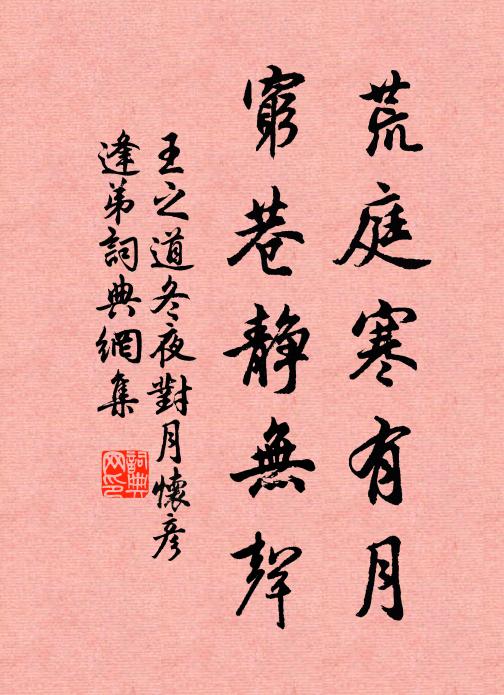 荒庭寒有月
窮巷靜無聲
王之道冬夜對月懷彥
逢弟詞典網集
詞典網印